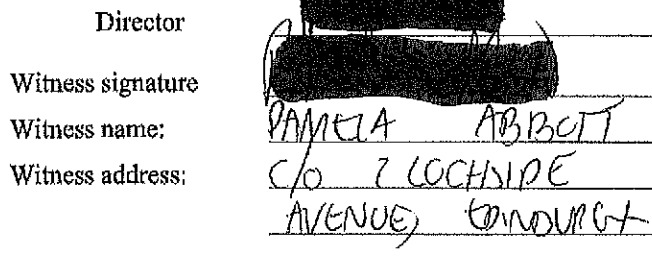 Director
Witness signature
Witness name: PAMELA ABBOTT
Witness address: C/O 7 LOCHSIDE
AVENUE, EDINBURGH